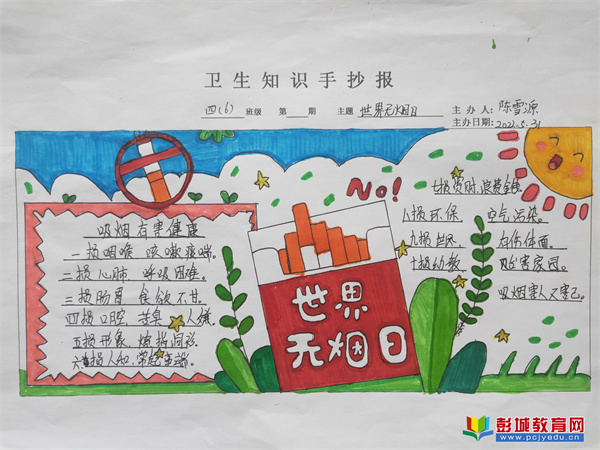 卫生知识手抄报
四(6) 班级 第 期 主题 世界无烟日 主办人: 陈雪源
主办日期: 2022.5.31
No!
吸烟有害健康
一损咽喉 咳嗽痰喘。
二损心肺 呼吸困难。
三损肠胃 食欲不甘。
四损口腔, 苦臭 人嫌
五损形象
六损人和, 常起事端。
七损费时, 浪费金钱。
八损环保 空气污染。
九损 有伤体面。
十损幼教 害家园。
吸烟害人又害己。
世界
无烟日
彭城教育网
www.pcjyedu.cn